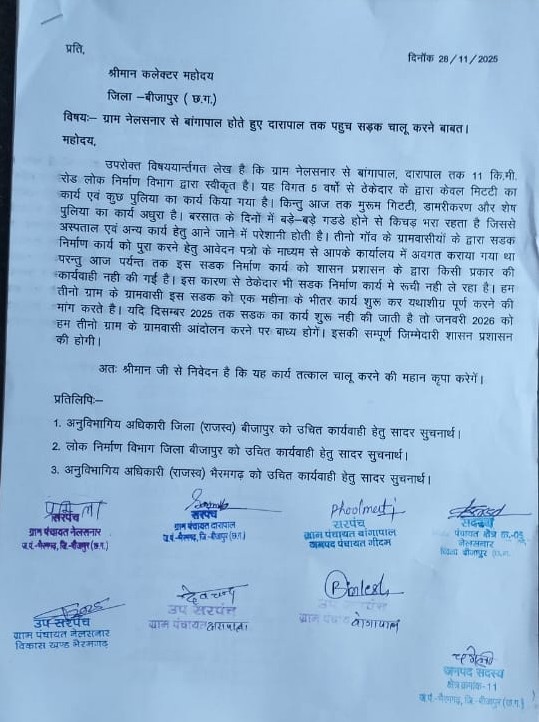 प्रति,
दिनॉक 28/11/2025
श्रीमान कलेक्टर महोदय
जिला –बीजापुर ( छ.ग.)
विषयः– ग्राम नेलसनार से बांगापाल होते हुए दारापाल तक पहुच सड़क चालू करने बाबत।
महोदय,
उपरोक्त विषयर्यान्तगत लेख है कि ग्राम नेलसनार से बांगापाल, दारापाल तक 11 कि.मी.
रोड लोक निर्माण विभाग द्वारा स्वीकृत है। यह विगत 5 वर्षो से ठेकेदार के द्वारा केवल मिटटी का
कार्य एवं कुछ पुलिया का कार्य किया गया है। किन्तु आज तक मुरूम गिटटी, डामरीकरण और शेष
पुलिया का कार्य अधुरा है। बरसात के दिनों में बड़े–बड़े गडडे होने से किचड़ भरा रहता है जिससे
अस्पताल एवं अन्य कार्य हेतु आने जाने में परेशानी होती है। तीनो गॉव के ग्रामवासीयों के द्वारा सडक
निर्माण कार्य को पुरा करने हेतु आवेदन पत्रो के माध्यम से आपके कार्यालय में अवगत कराया गया था
परन्तु आज पर्यन्त तक इस सडक निर्माण कार्य को शासन प्रशासन के द्वारा किसी प्रकार की
कार्यवाही नही की गई है। इस कारण से ठेकेदार भी सडक निर्माण कार्य मे रूची नही ले रहा है। हम
तीनो ग्राम के ग्रामवासी इस सडक को एक महीना के भीतर कार्य शुरू कर यथाशीग्र पूर्ण करने की
मांग करते है। यदि दिसम्बर 2025 तक सडक का कार्य शुरू नही की जाती है तो जनवरी 2026 को
हम तीनो ग्राम के ग्रामवासी आंदोलन करने पर बाध्य होगें। इसकी सम्पूर्ण जिम्मेदारी शासन प्रशासन
की होगी।
अतः श्रीमान जी से निवेदन है कि यह कार्य तत्काल चालू करने की महान कृपा करेगें।
प्रतिलिपिः–
1. अनुविभागिय अधिकारी जिला (राजस्व) बीजापुर को उचित कार्यवाही हेतु सादर सुचनार्थ।
2. लोक निर्माण विभाग जिला बीजापुर को उचित कार्यवाही हेतु सादर सुचनार्थ।
3. अनुविभागिय अधिकारी (राजस्व) भैरमगढ़ को उचित कार्यवाही हेतु सादर सुचनार्थ।
Phoolmati
सरपंच
ग्राम पंचायत नेलसनार
ज.पं.-भैरमगढ़, जि.-बीजापुर (छ.ग.)
सरपंच
ग्राम पंचायत दारापाल
ज.पं.-भैरमगढ़, जि.-बीजापुर (छ.ग.)
सरपंच
ग्राम पंचायत बांगापाल
जनपद पंचायत गीदम
सदस्य
पंचायत क्षेत्र
नेलसनार
जिला बीजापुर
उप सरपंच
ग्राम पंचायत नेलसनार
विकास खण्ड भैरमगढ़
देवचन्द
उप सरपंच
ग्राम पंचायत दारापाल
Bimlesh
उप सरपंच
ग्राम पंचायत बांगापाल
जनपद सदस्य
क्षेत्र क्रमांक-11
ज.पं.-भैरमगढ़, जि.-बीजापुर (छ.ग.)